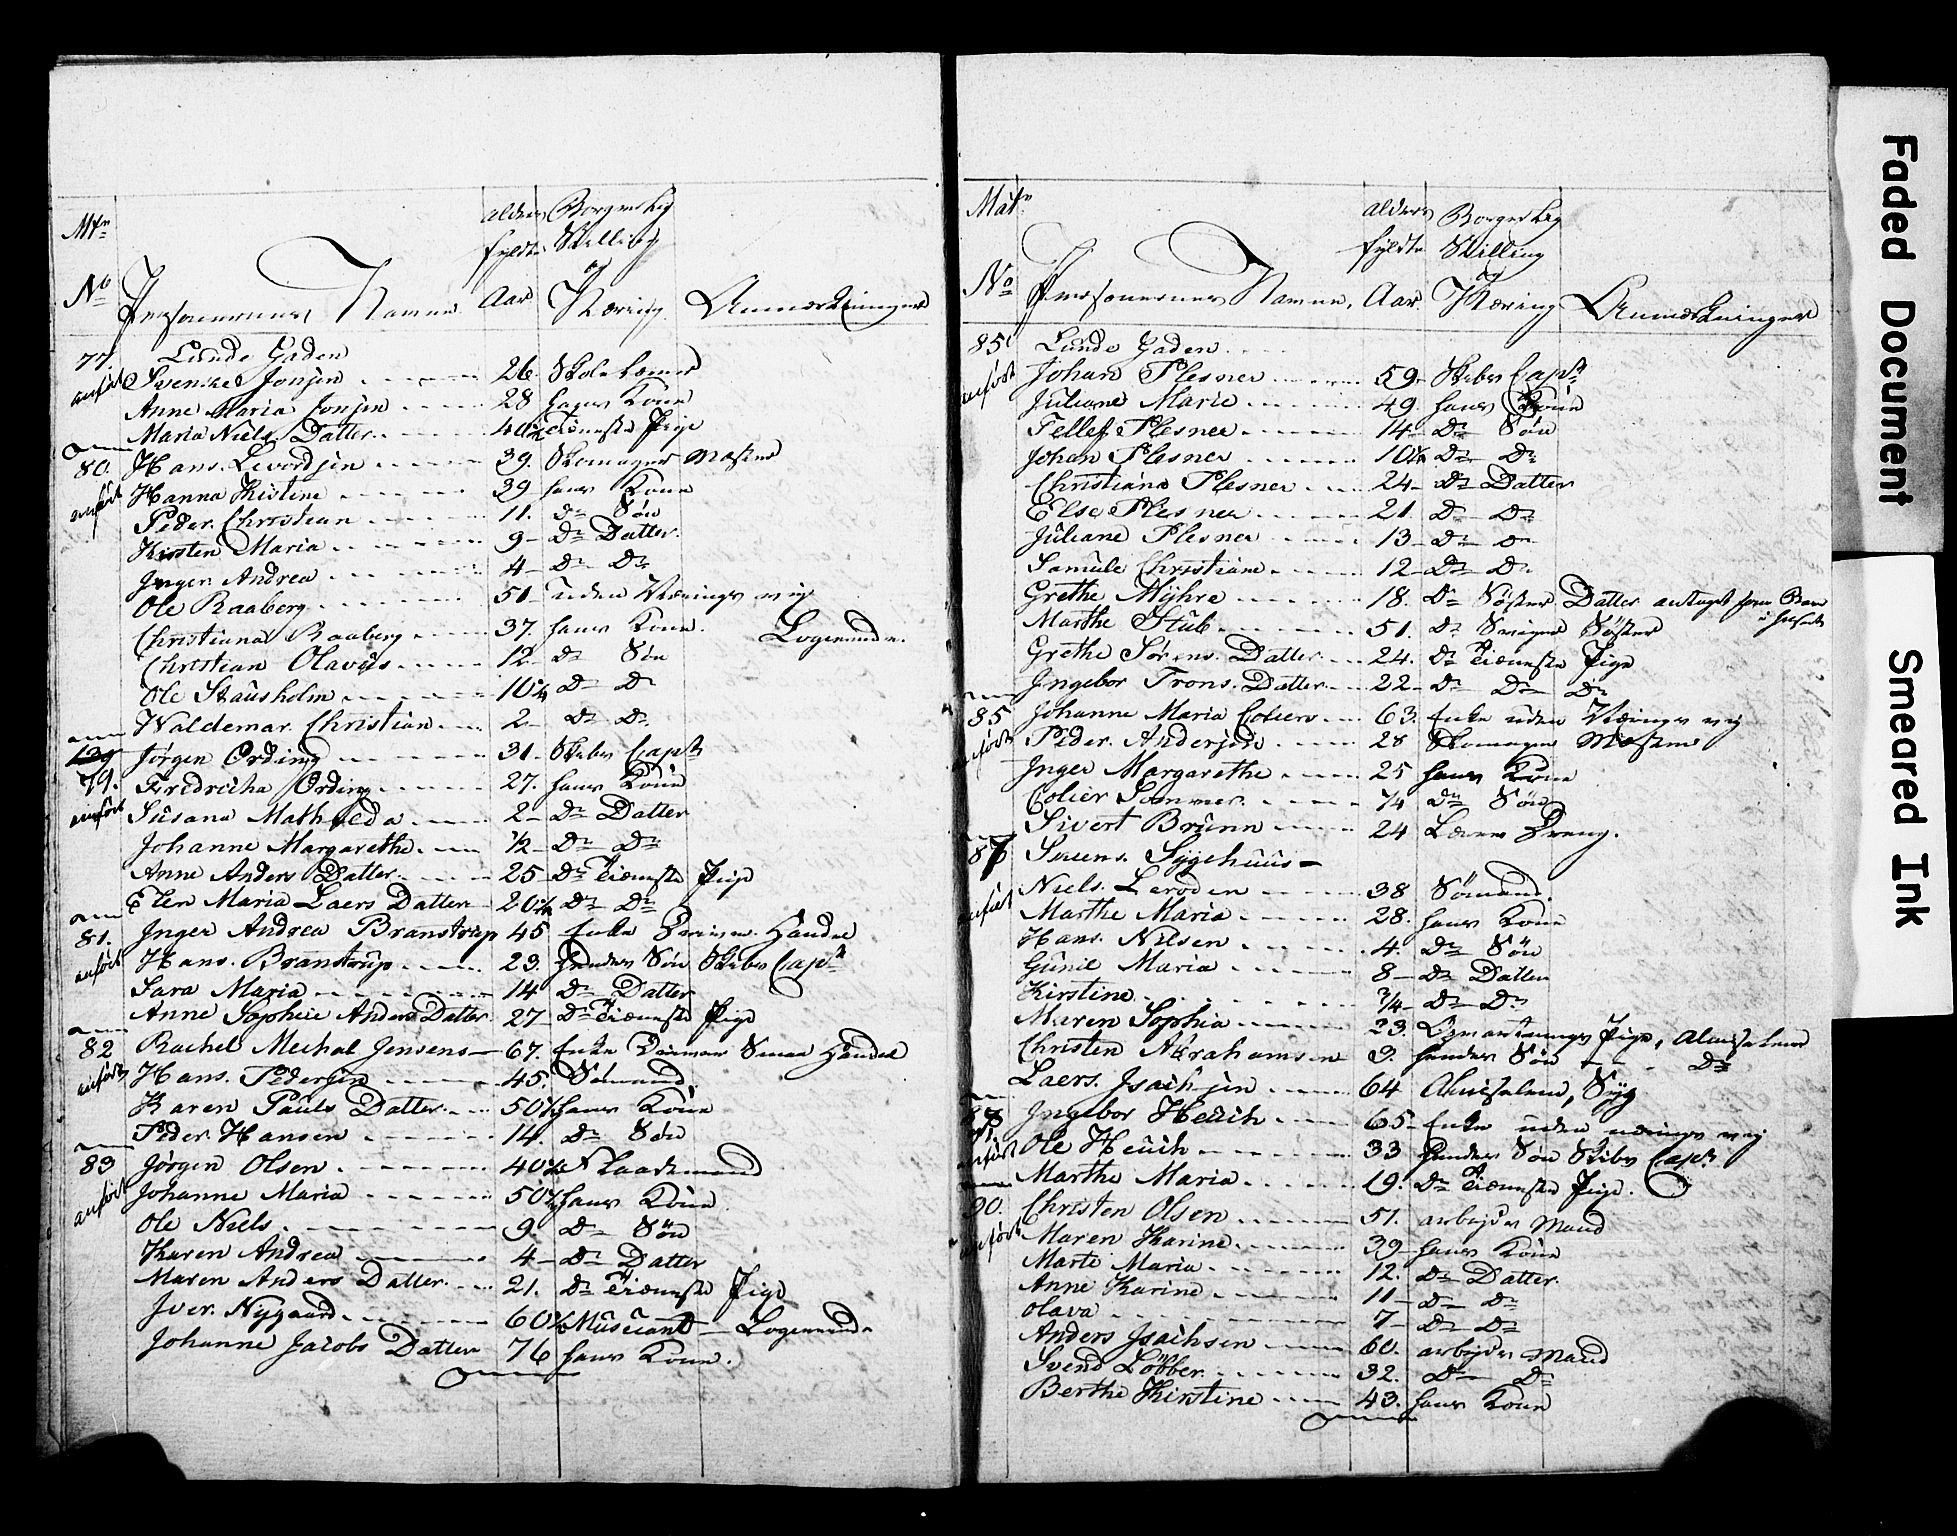 Mtr
No
Personernes Namne
alders fyldte Aar
Borgerlig Stilling og Næring
Anmærkninger
77. Lunde Gaden
anført Svenike Jonsen 26. Skole Lærer
Anne Maria Jonsen 28 hans Kone
Maria Niels Datter 40½ Tieneste Pige
80. Hans Levordsen 39. Skomager Mæster
anført Hanna Kistine 39 hans Kone
Peder Christian 11. Do Søn
Kirsten Maria 9 Do Datter
Inger Andrea 4 Do Do
Ole Raaberg 51 uden Nærings vej
Christiana Raaberg 37. hans Kone. Logerende.
Christian Olavus 12 Do Søn
Ole Stausholm 10¼ Do Do
Waldemar Christian 2 Do Do
Jørgen Ording 31 Skibs Capt
79. Fredricha Ording 27. hans Kone
anført Susana Mathilda 2 Do Datter
Johanne Margarethe ½ Do Do
Anne Anders Datter 25 Do Tieneste Pige
Elen Maria Laers Datter 20½ Do Do
81. Inger Andrea Branstrup 45 Enke Handel
anført Hans Branstrup 23. Hendes Søn Skibs Capt
Sara Maria 14 Do Datter
Anne Sopheie Anders Datter 27 Do Tieneste Pige
82 Rachel Mechal Jensens 67. Enke Smaa Handel
anført Hans Pedersen 45. Sømand
Karen Pauls Datter 50½ hans Kone
Peder Hansen 14. Do Søn
83 Jørgen Olsen 40½
anført Johanne Maria 50½ hans Kone
Ole Niels 9. Do Søn
Karen Andrea 4 Do Datter
Maren Anders Datter 21. Do Tieneste Pige
Iver Nygaard 60½ Musicant Logerende
Johanne Jacobs Datter 76 hans Kone.
Matr
No
Personernes Namne,
alders fyldte Aar
Borgerlig Stilling og Næring
Anmærkninger
85 Lunde Gaden
anført Johan Plesner 59 Skibs Capt
Juliane Marie 49 hans Kone
Tellef Plesner 14 Do Søn
Johan Plesner 10½ Do Do
Christiana Plesner 24 Do Datter
Else Plesner 21 Do Do
Juliane Plesner 13 Do Do
Samule Christiane 12 Do Do
Grethe Myhre 18. Do Søster Datter antaget som Barn i huset
Marthe Stub 51. Do Sviger Søster
Grethe Sørens Datter 24. Do Tieneste Pige
Ingebor Trons Datter 22 Do Do Do
85 Johanne Maria Coliers 63. Enke uden Nærings vej
anført Peder Andersen 28 Skomager Mæster
Inger Margarethe 25 hans Kone
Colier Sommer ¼ Do Søn
Sivert Brunn 24 Lære Dreng.
87 Byens Sygehuus
anført Niels Laroden 38 Sømand
Marthe Maria 28. hans Kone
Hans Nilsen 4. Do Søn
Gunil Maria 8 Do Datter
Kirstine ¾ Do Do
Maren Sophia 23. Opvartnings Pige, Almisselem
Christen Abrahamsen 9. hendes Søn Do
Laers Isachsen 64 Almisselem, Syg
Ingebor Heuch 65 Enke uden nærings vej
anført Ole Heuch 33 Hendes Søn Skibs Capt
Marthe Maria 19. Do Tieneste Pige.
90. Christen Olsen 51. arbejds Mand
anført Maren Karine 39 hans Kone
Marte Maria 12. Do Datter
Anne Karine 11 Do Do
Olava 7 Do Do
Anders Isachsen 60. arbejds Mand
Svend Løbber 32. Do Do
Berthe Kirstine 43. hans Kone
Faded Document
Smeared Ink